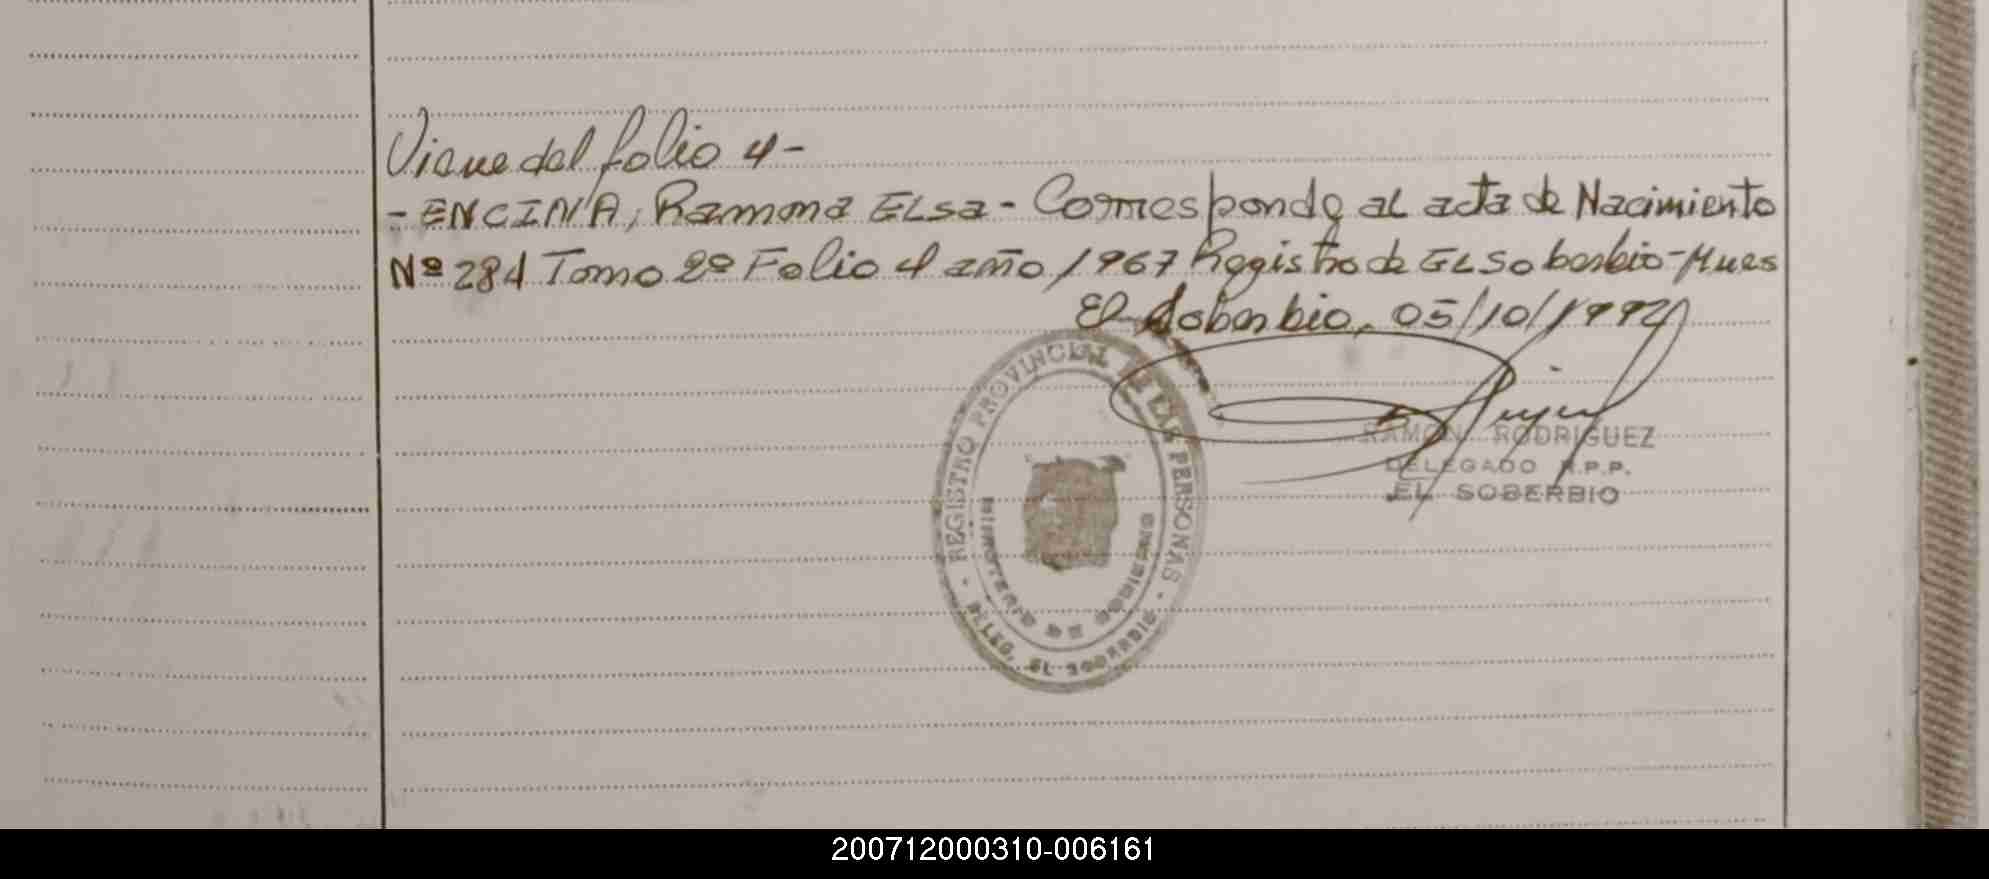 Viene del folio 4-
- ENCINA, Ramona ELsa - Corresponde al acta de Nacimiento
Nº 284 Tomo 2º Folio 4 año 1967 Registro de EL Soberbio-Mnes
El Soberbio, 05/10/1992
REGISTRO PROVINCIAL DE LAS PERSONAS
MINISTERIO DE GOBIERNO
DELEG. EL SOBERBIO
RAMON RODRIGUEZ
DELEGADO R.P.P.
EL SOBERBIO
200712000310-006161